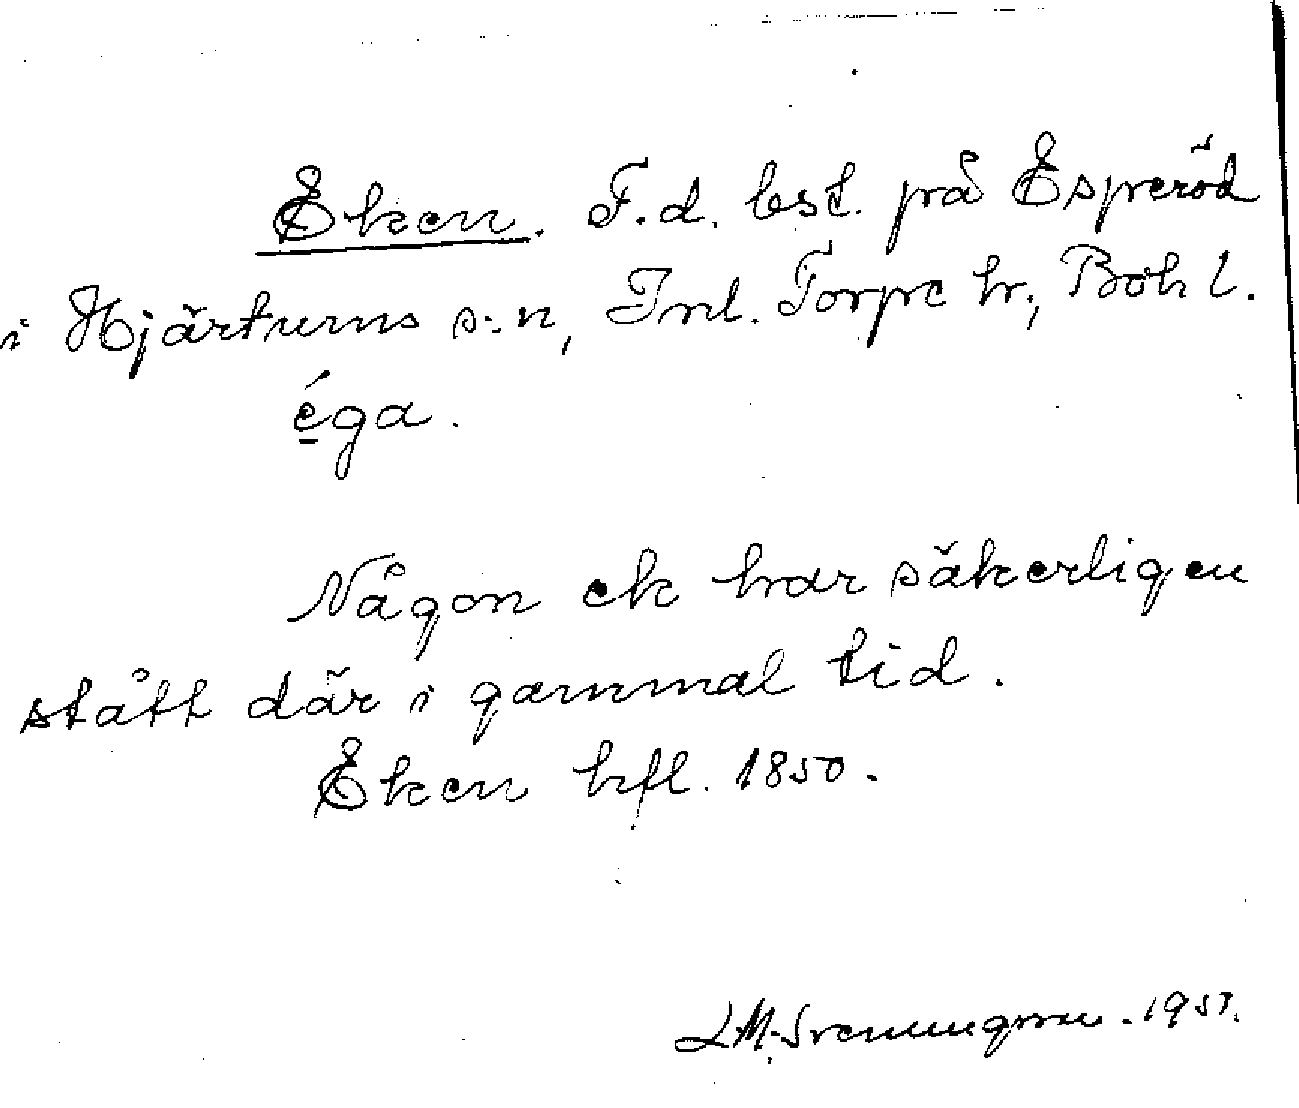 Eken. F.d. lst. på Esperöd
i Hjärtums s:n, Inl. Torpe hr, Boh l.
éga.
Någon ek har säkerligen
stått där i gammal tid.
Eken hfl. 1850.